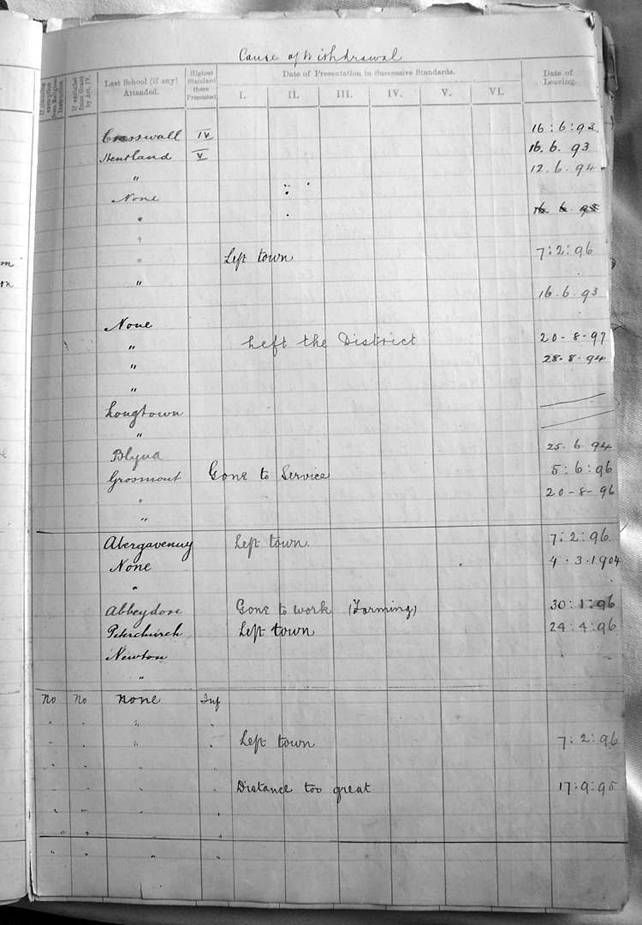 Cause of Withdrawal
If claiming exemption from Religious Instruction
If excluded from Grant by Art. 13.
Last School (if any) Attended.
Highest Standard there Presented
Date of Presentation in Successive Standards.
Date of Leaving.
I. II. III. IV. V. VI.
Cresswall IV 16:6:93
Hentland V 16.6.93
" 12.6.94
None
" 16 6 95
"
" Left town 7:2:96
"
16.6.93
None
" Left the District 20-8-97
" 28-8-94
"
Longtown
"
Blyna 25.6.94
Grosmont Gone to Service 5:6:96
" 20-8-96
"
Abergavenny Left town 7:2:96
None 4.3.1904
"
Abbeydore Gone to work (Farming) 30:1:96
Peterchurch Left town 24:4:96
Newton
"
No No None Inf
" " " "
" " " " Left town 7:2:96
" " " "
" " " " Distance too great 17:9:95
" " " "
" " " "
" " "